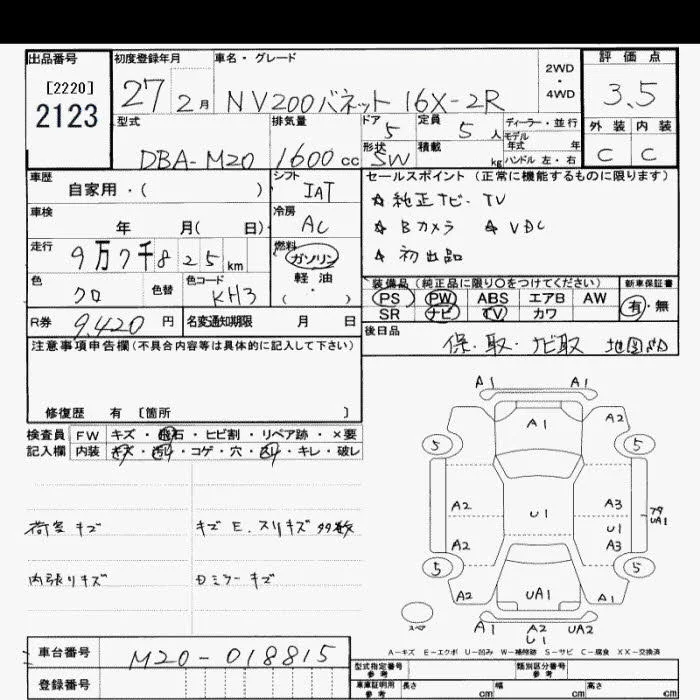 出品番号 初度登録年月 車名・グレード 評価点
[2220]
2123
27 2月 NV200バネット 16X-2R 2WD・4WD 3.5
型式 排気量 ドア 定員 ディーラー・並行 外装 内装
DBA-M20 1600cc 5 5人 モデル年式 年 C C
形状 SW 積載 kg ハンドル 左・右
車歴 シフト セールスポイント (正常に機能するものに限ります)
自家用・( ) IAT ☆純正ナビ・TV
車検 冷房 ☆Bカメラ ☆VDC
年 月( 日) AC ☆初出品
走行 燃料
9万7千825km ガソリン
軽油
・( )
色 色替 色コード 装備品 (純正品に限り○をつけてください) 新車保証書
クロ KH3 PS PW ABS エアB AW 有・無
SR ナビ TV カワ
R券 9,420円 名変通知期限 月 日 後日品
保・取・ナビ取
注意事項申告欄(不具合内容等は具体的に記入して下さい)
修復歴 有 〔箇所 〕
検査員 FW キズ・飛石・ヒビ割・リペア跡・×要
記入欄 内装 キズ・汚れ・コゲ・穴・スリ・キレ・破レ
荷室キズ キズE.スリキズ多数
内張りキズ Dミラーキズ
A1 A1
A1 A2
5 5
A2 U1 A3
U1
UA1
A2 A3
5 5
A2 UA1 A1
スペア A1 A2 UA2
U1
A-キズ E-エクボ U-凹み W-補修跡 S-サビ C-腐食 XX-交換済
車台番号 M20-018815
型式指定番号 参考 類別区分番号 参考
登録番号 車庫証明用 参考 長さ cm 幅 cm 高さ cm